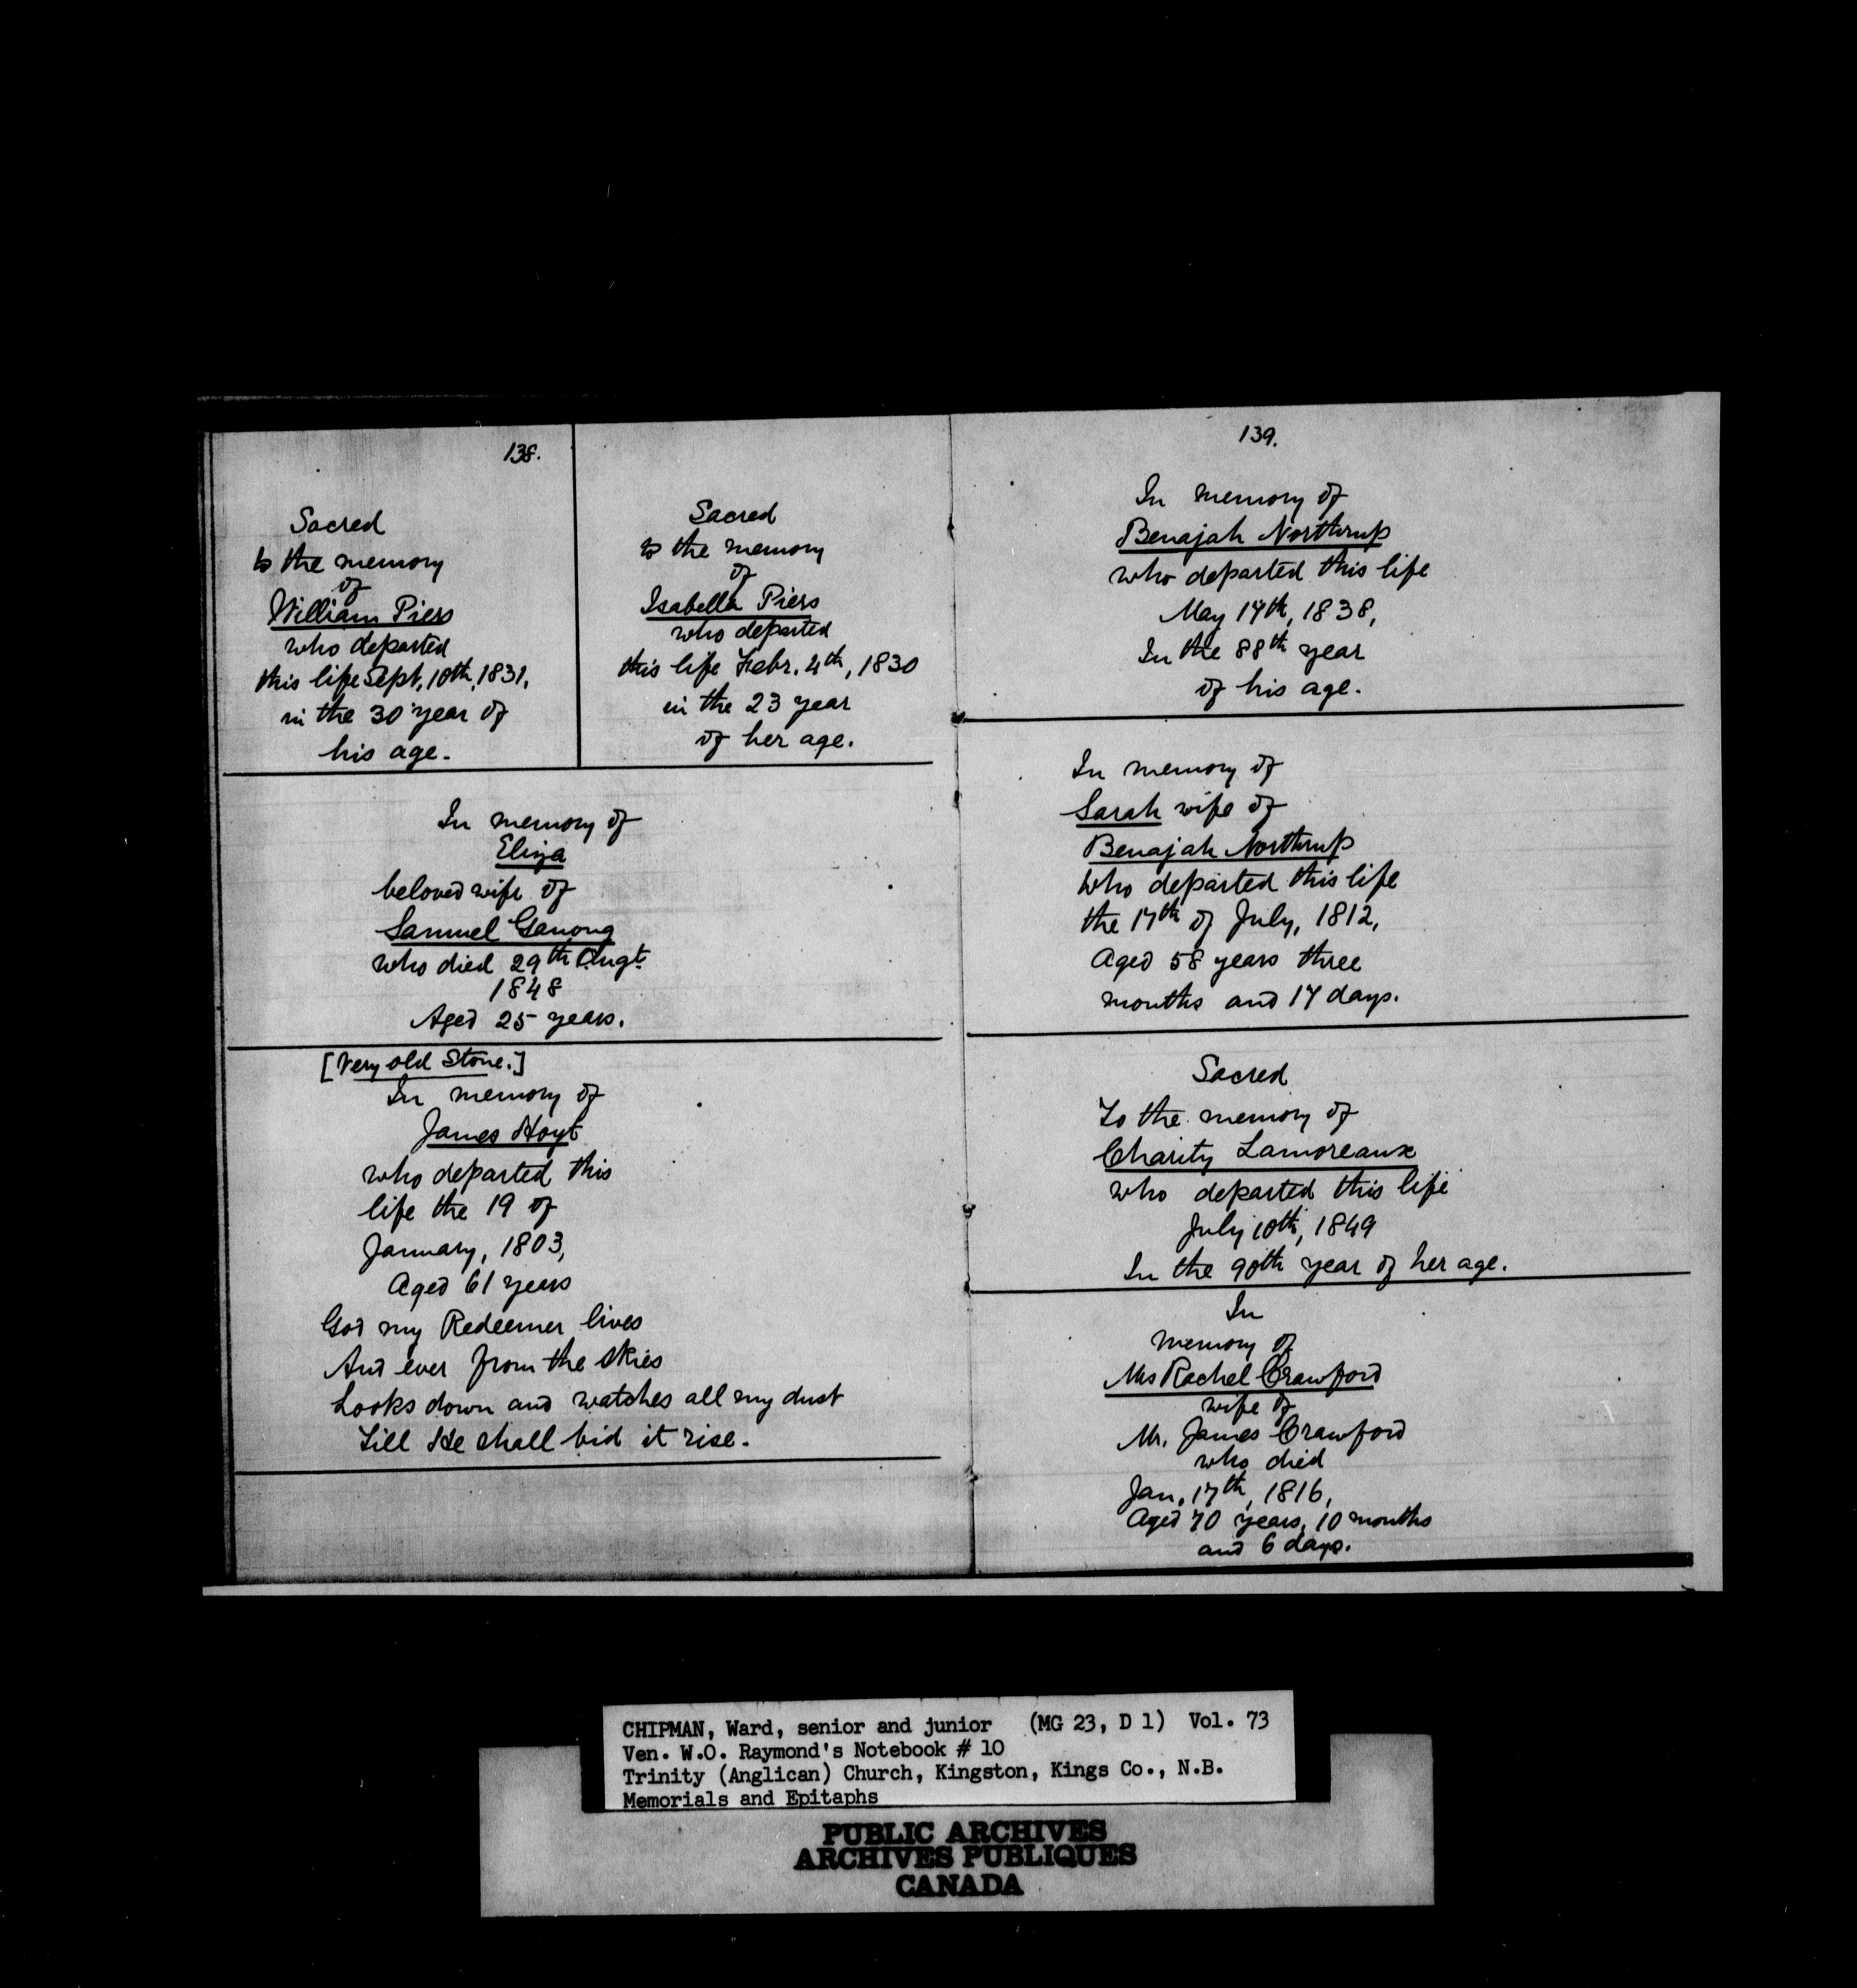 138.
Sacred
to the memory
of
William Piers
who departed
this life Sept, 10th, 1831,
in the 30 year of
his age.
Sacred
to the memory
of
Isabella Piers
who departed
this life Febr. 4th, 1830
in the 23 year
of her age.
In memory of
Eliza
beloved wife of
Samuel Ganong
who died 29th Augt.
1848
Aged 25 years.
[Very old Stone.]
In memory of
James Hoyt
who departed this
life the 19 of
January, 1803,
Aged 61 years
God my Redeemer lives
And ever from the skies
Looks down and watches all my dust
Till He shall bid it rise.
139.
In memory of
Benajah Northrup
who departed this life
May 17th, 1838,
In the 88th year
of his age.
In memory of
Sarah wife of
Benajah Northrup
Who departed this life
the 17th of July, 1812,
Aged 58 years three
months and 17 days.
Sacred
To the memory of
Charity Lamoreaux
who departed this life
July 10th, 1849
In the 90th year of her age.
In
memory of
Mrs Rachel Crawford
wife of
Mr. James Crawford
who died
Jan. 17th, 1816,
Aged 70 years, 10 months
and 6 days.
CHIPMAN, Ward, senior and junior (MG 23, D 1) Vol. 73
Ven. W.O. Raymond's Notebook # 10
Trinity (Anglican) Church, Kingston, Kings Co., N.B.
Memorials and Epitaphs
PUBLIC ARCHIVES
ARCHIVES PUBLIQUES
CANADA